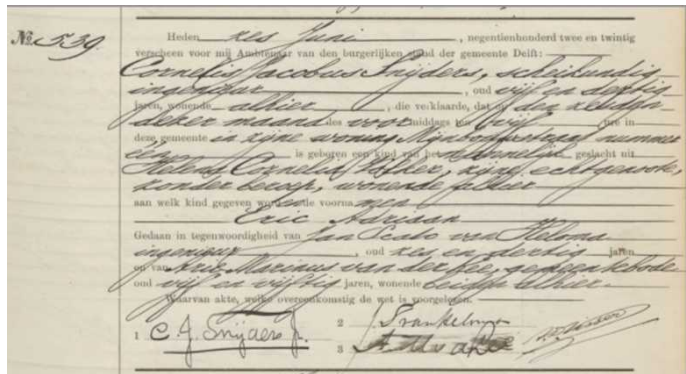 No. 539.
Heden zes Juni, negentienhonderd twee en twintig
verscheen voor mij Ambtenaar van den burgerlijken stand der gemeente Delft:
Cornelis Jacobus Snijders, scheikundig
ingenieur, oud vijf en dertig
jaren, wonende alhier, die verklaarde, dat op den zelfden
dezer maand des voormiddags ten vijf ure in
deze gemeente in zijne woning nummer
een is geboren een kind van het mannelijk geslacht uit
Helena Cornelia zijne echtgenoote,
zonder beroep, wonende alhier
aan welk kind gegeven worden de voornamen
Eric Adriaan
Gedaan in tegenwoordigheid van Jan van Heloma
ingenieur, oud zes en dertig jaren
en van Arie Marinus van der gemeentebode
oud vijf en vijftig jaren, wonende beiden alhier.
Waarvan akte, welke overeenkomstig de wet is voorgelezen.
1 C. J. Snijders Jr.
2
3